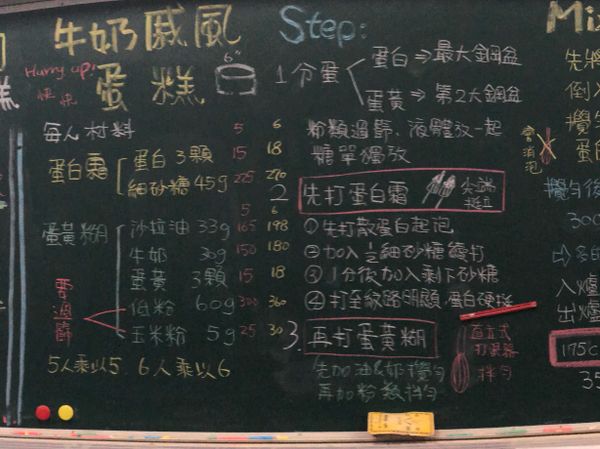 牛奶戚風
蛋糕
Hurry up!
快 快
6"
每人材料 5 6
蛋白霜
蛋白 3顆 15 18
細砂糖 45g 225 270
5 6
蛋黃糊
沙拉油 33g 165 198
牛奶 30g 150 180
蛋黃 3顆 15 18
低粉 60g 300 360
玉米粉 5g 25 30
要過篩
5人乘以5. 6人乘以6
Step:
1 分蛋
蛋白⇒最大鋼盆
蛋黃⇒第2大鋼盆
粉類過篩、液體放一起
糖單獨放
2 先打蛋白霜 尖端挺立
①先打散蛋白起泡
②加入½細砂糖續打
③1分後加入剩下砂糖
④打至紋路明顯.蛋白硬挺
3 再打蛋黃糊
先加油&奶攪勻
再加粉類拌勻
直立式
打蛋器
拌勻
Mix
先將
倒入
攪勻
蛋白
會消泡
攪勻後
300
入爐
出爐
175c
35